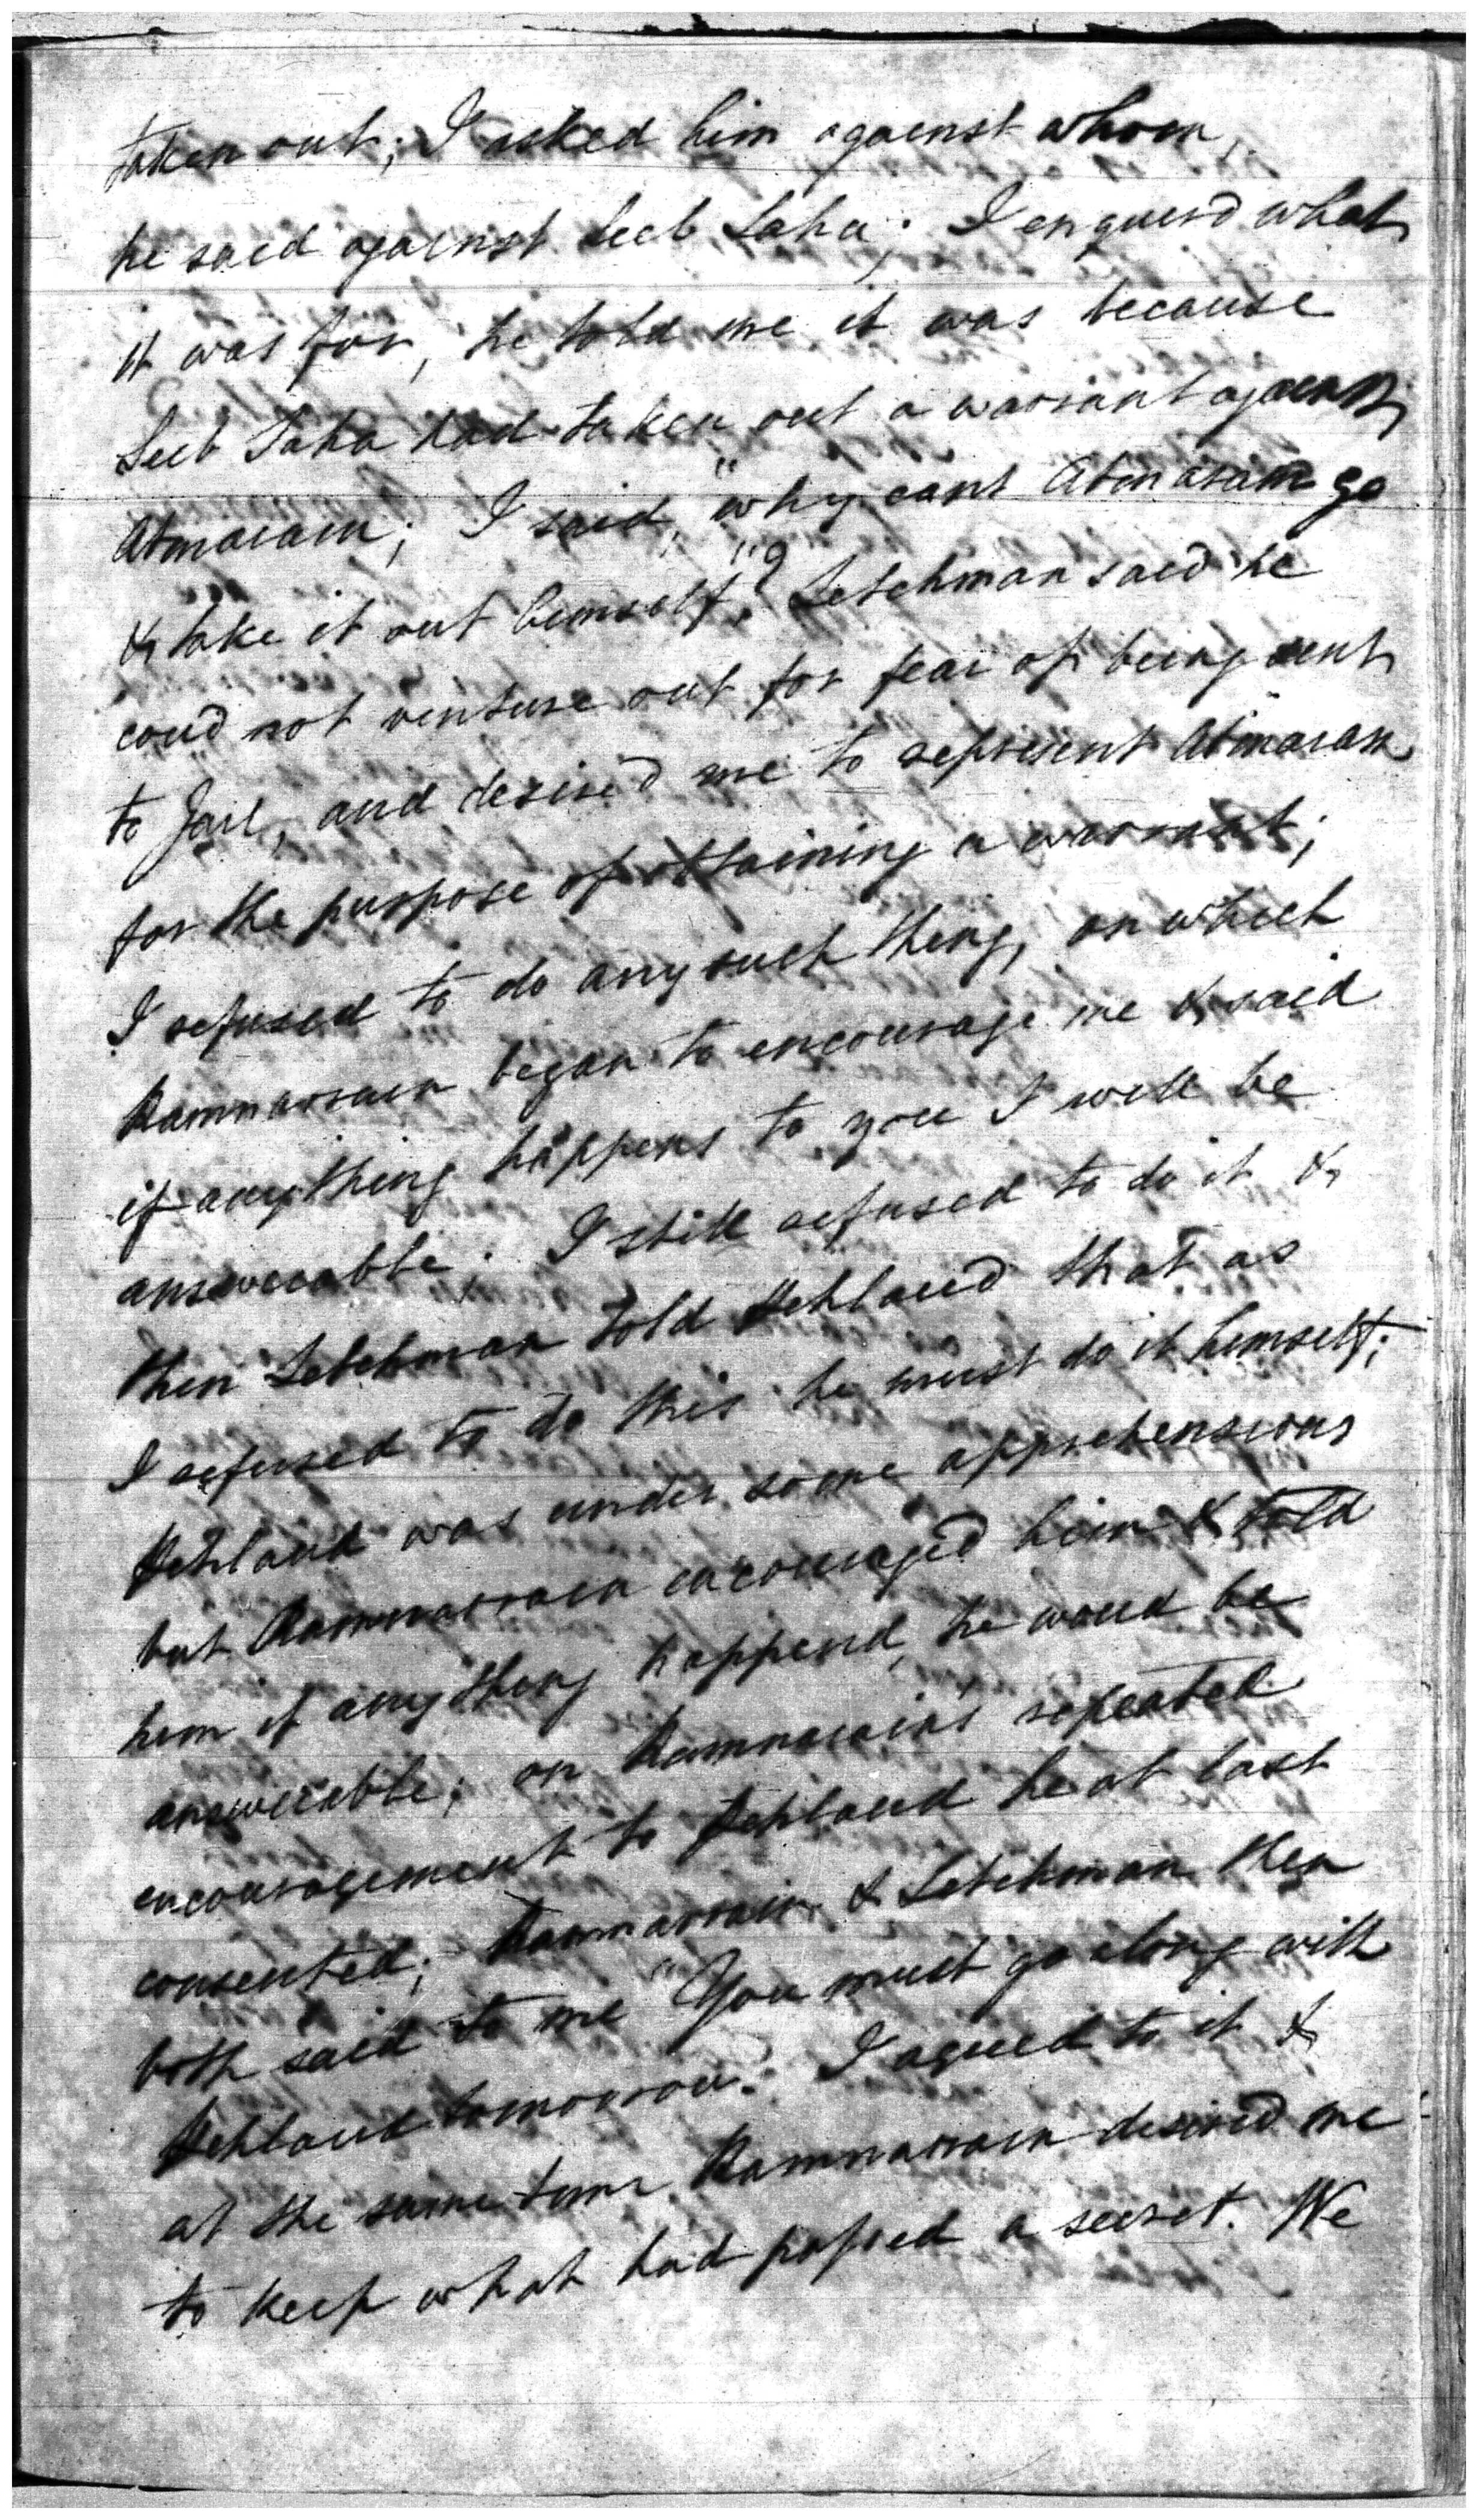 taken out; I asked him against whom,
he said against Seeb Saha; I enquir'd what
it was for, he told me it was because
Seeb Saha had taken out a warrant against
Atmaram; I said, "why cant Atmaram go
& take it out himself"? Letchman said he
coud not venture out for fear of being sent
to Jail, and desired me to represent Atmaram
for the purpose of obtaining a warrant;
I refused to do any such thing, on which
Ramnarrain began to encourage me & said
if anything happens to you I will be
answerable; I still refused to do it &
then Letchman told Hehlaud that as
I refused to do this he must do it himself;
Hehlaud was under some apprehensions
but Ramnarrain encouraged him & told
him if any thing happend, he woud be
answerable; on Ramnarain's repeated
encouragement to Hehlaud he at last
consented; Ramnarrain & Letchman then
both said to me "You must go along with
Hehlaud tomorrow. I agreed to it &
at the same time Ramnarrain desired me
to keep what had passed a secret. We